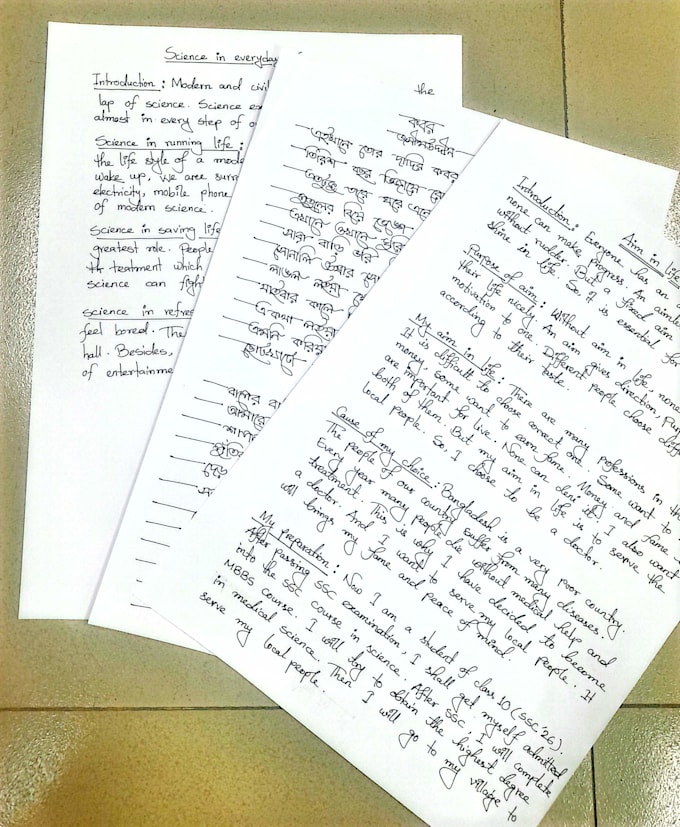 Science in everyday
Introduction : Modern and civi
lap of science. Science ex
almost in every step of o
Science in running life :
the life style of a mode
wake up, we are surr
electricity, mobile phone
of modern science.
Science in saving life
greatest role. People
th treatment which
science can figh
science in refres
feel bored. The
hall. Besides,
of entertainme
the
কবর
জসীমউদ্দীন
এইখানে তোর দাদির কবর
তিরিশ বছর ভিজায়ে রে
এতটুকু তারে ঘরে এনে
পুতুলের বিয়ে ভেঙ্গে
এখানে ওখানে ঘুরি
সারা বাড়ি ভরি
সোনালি ঊষার সো
লাঙল লইয়া
যাইবার কালে
এ কথা লইয়া
এমনি করিয়া
ছোটখাটো
বাপের বা
আমারে
শাপলা
Aim in life
Introduction : Everyone has an a
none can make progress. An aimle
without rudder. But a fixed aim
shine in life. So, it is essential for
Purpose of aim : Without aim in life none
their life nicely. An aim gives direction, pur
motivation to one. Different people choose diff
according to their taste.
My aim in life : There are many professions in th
It is difficult to choose correct one. Some want to
money. Some want to earn fame. Money and fame
are important for live. None can deni it. I also want
both of them. But my aim in life is to serve the
local people. So, I choose to be a doctor.
Cause of my choice : Bangladesh is a very poor country.
The people of our country suffer from many diseases.
Every year many people die without medical help and
treatment. This is why I have decided to become
a doctor. And I want to serve my local people. It
will brings my fame and peace of mind.
My preparation : Now I am a student of class 10 (SSC'26).
After passing SSC examination, I shall get myself admitted
into the SSC course in science. After SSC, I will complete
MBBS course. I will try to obtain the highest degree
in medical science. Then I will go to my village to
serve my local people.